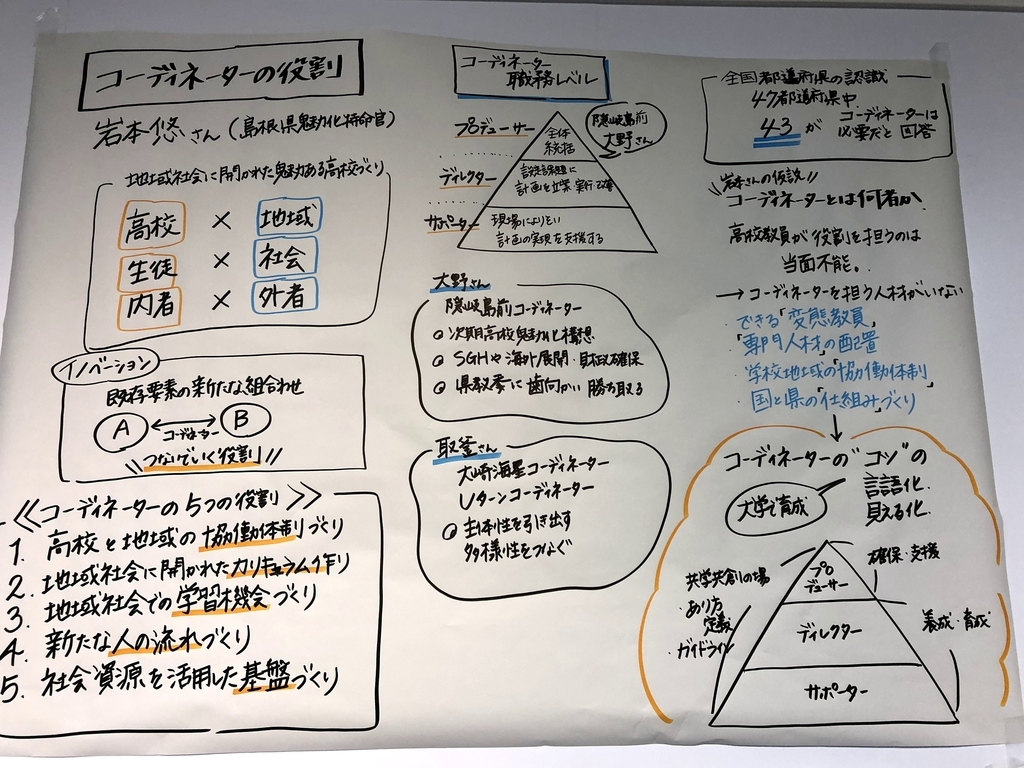 コーディネーターの役割
岩本悠さん(島根県魅力化特命官)
地域社会に開かれた魅力ある高校づくり
高校 × 地域
生徒 × 社会
内者 × 外者
イノベーション
既存要素の新たな組合わせ
A ⟷ B
コーディネーター
\\つないでいく役割//
≪コーディネーターの5つの役割≫
1. 高校と地域の協働体制づくり
2. 地域社会に開かれたカリキュラム作り
3. 地域社会での学習機会づくり
4. 新たな人の流れづくり
5. 社会資源を活用した基盤づくり
コーディネーター
職務レベル
プロデューサー
全体
統括
隠岐島前
大野さん
ディレクター
課題に
計画を立案 実行
サポーター
現場によりそい
計画の実現を支援する
大野さん
隠岐島前コーディネーター
次期高校魅力化構想
SGHや海外展開・財政確保
県教委に歯向かい勝ち取る
取釜さん
大崎海星コーディネーター
Uターンコーディネーター
主体性を引き出す
多様性をつなぐ
全国都道府県の認識
47都道府県中
43が
コーディネーターは
必要だと回答
\\岩本さんの仮説//
コーディネーターとは何者か
高校教員が役割を担うのは
当面不能。
→コーディネーターを担う人材がいない
・できる「変態教員」
・「専門人材」の配置
・学校地域の「協働体制」
・国と県の仕組みづくり
コーディネーターの"コツ"の
言語化
見える化
大学で育成
共学共創の場
・あり方
定義
・ガイドライン
プロ
デューサー
ディレクター
サポーター
確保・支援
養成・育成